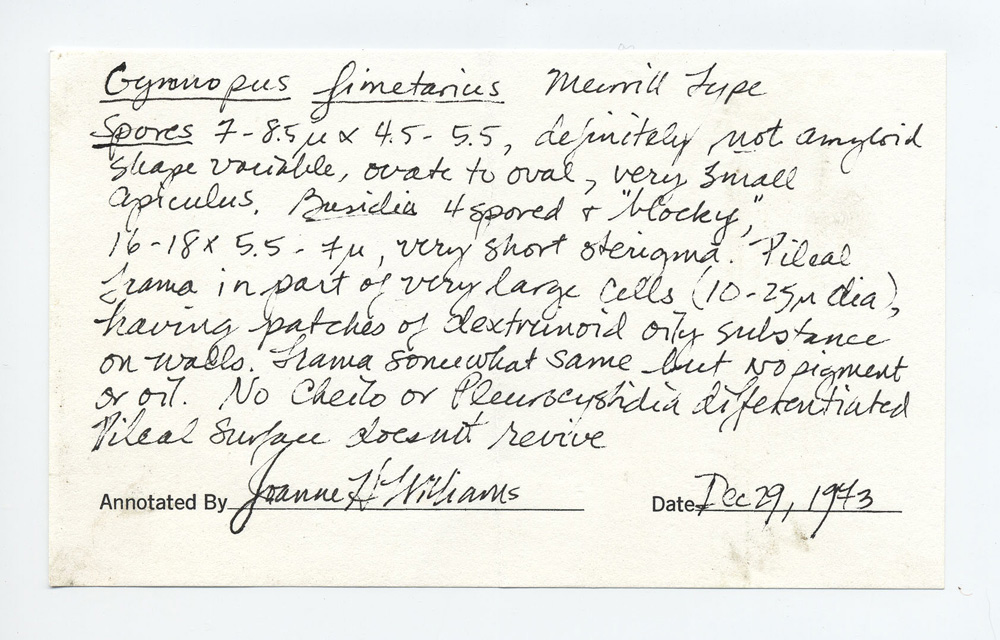 Gymnopus fimetarius Murrill Type
Spores 7-8.5µ x 4.5-5.5, definitely not amyloid
shape variable, ovate to oval, very small
apiculus. Basidia 4 spored + "blocky",
16-18 x 5.5-7µ, very short sterigma. Pileal
trama in part of very large cells (10-25µ dia),
having patches of dextrinoid oily substance
on walls. Trama somewhat same but no pigment
or oil. No Cheilo or Pleurocystidia differentiated
Pileal Surface doesn't revive
Annotated By Joanne H Williams Date Dec 29, 1973